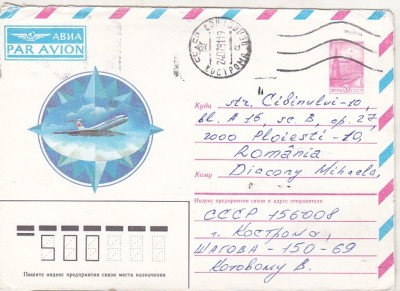 АВИА
PAR AVION
Куда
str. Cibinului-10,
bl. A 16, sc. B, ap. 27,
2000 Ploiesti-10,
România
Кому
Diacony Mihaela,
Индекс предприятия связи и адрес отправителя
СССР 156008
г. Кострома,
ШАГОВА-150-69
Котовому В.
500
Пишите индекс предприятия связи места назначения